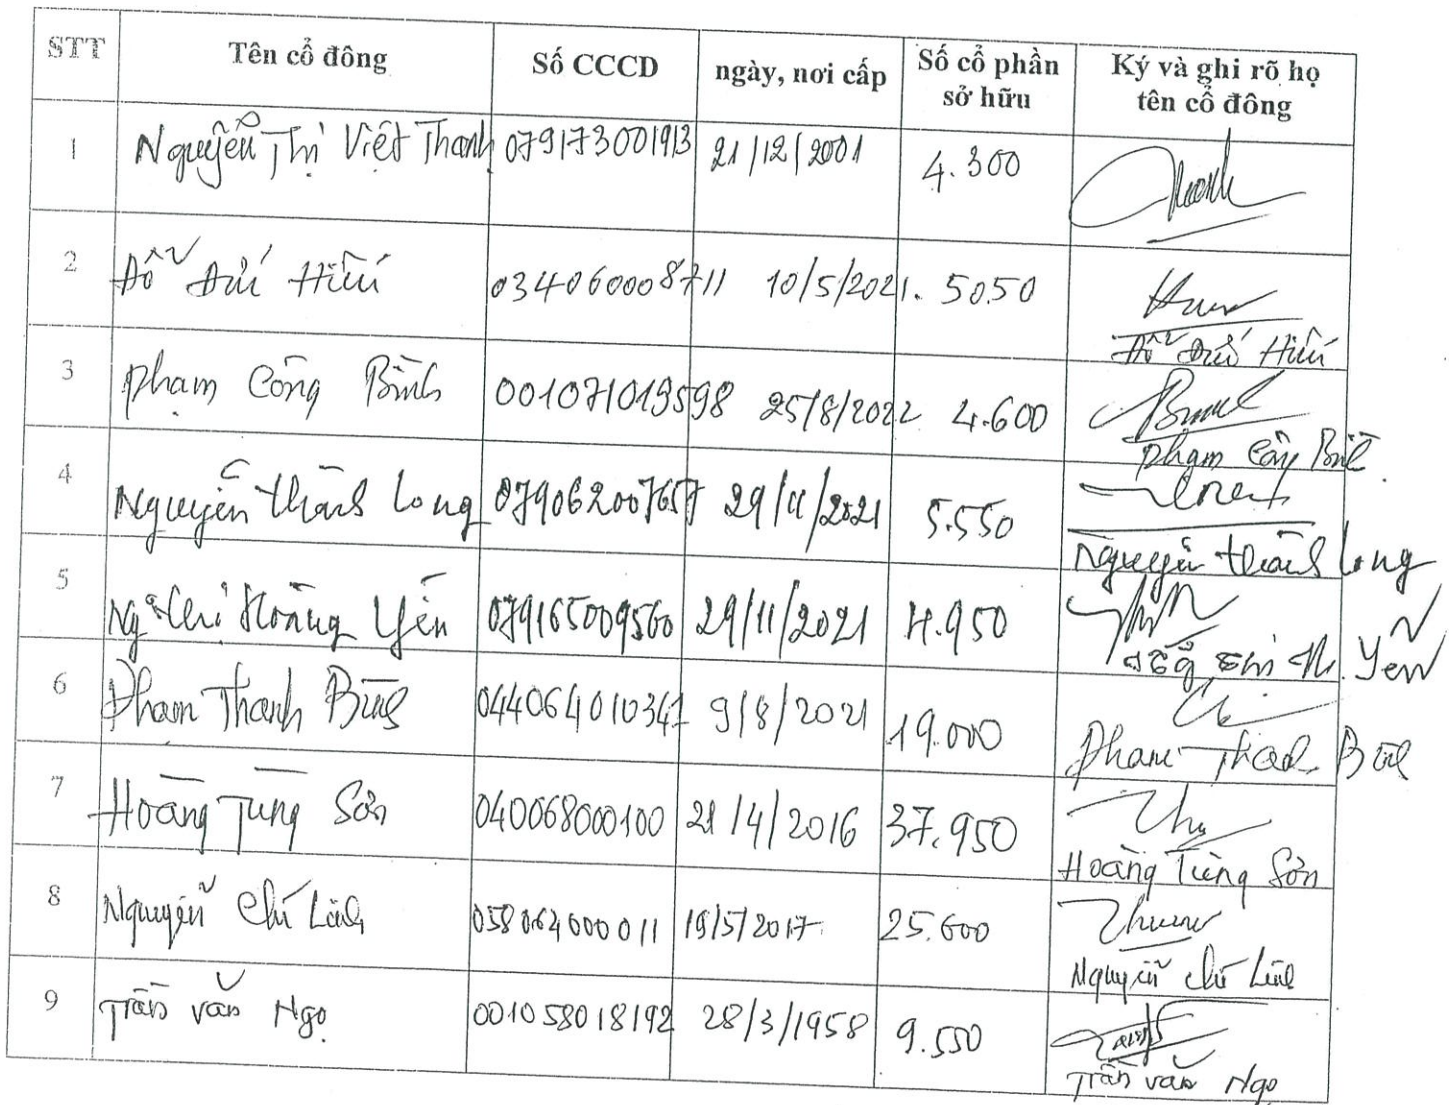 STT Tên cổ đông Số CCCD ngày, nơi cấp Số cổ phần sở hữu Ký và ghi rõ họ tên cổ đông
1 Nguyễn Thị Việt Thanh 079173001913 21/12/2001 4.300 Thanh
2 Đỗ Đức Hiếu 034060008711 10/5/2021. 5050
Đỗ Đức Hiếu
3 Phạm Công Bình 001071019598 25/8/2022 4.600
Phạm Công Bình
4 Nguyễn Thành Long 079062007657 29/11/2021 5.550
Nguyễn Thành Long
5 Ng Thị Hoàng Yến 079165009560 29/11/2021 4.950
Thị H. Yến
6 Phạm Thanh Bình 044064010341 9/8/2021 19.000
Phạm Thanh Bình
7 Hoàng Tùng Sơn 040068000100 21/4/2016 37.950
Hoàng Tùng Sơn
8 Nguyễn Chí Linh 058064000011 19/5/2017 25.600
Nguyễn Chí Linh
9 Trần Văn Ngọ 001058018192 28/3/1958 9.550
Trần Văn Ngọ